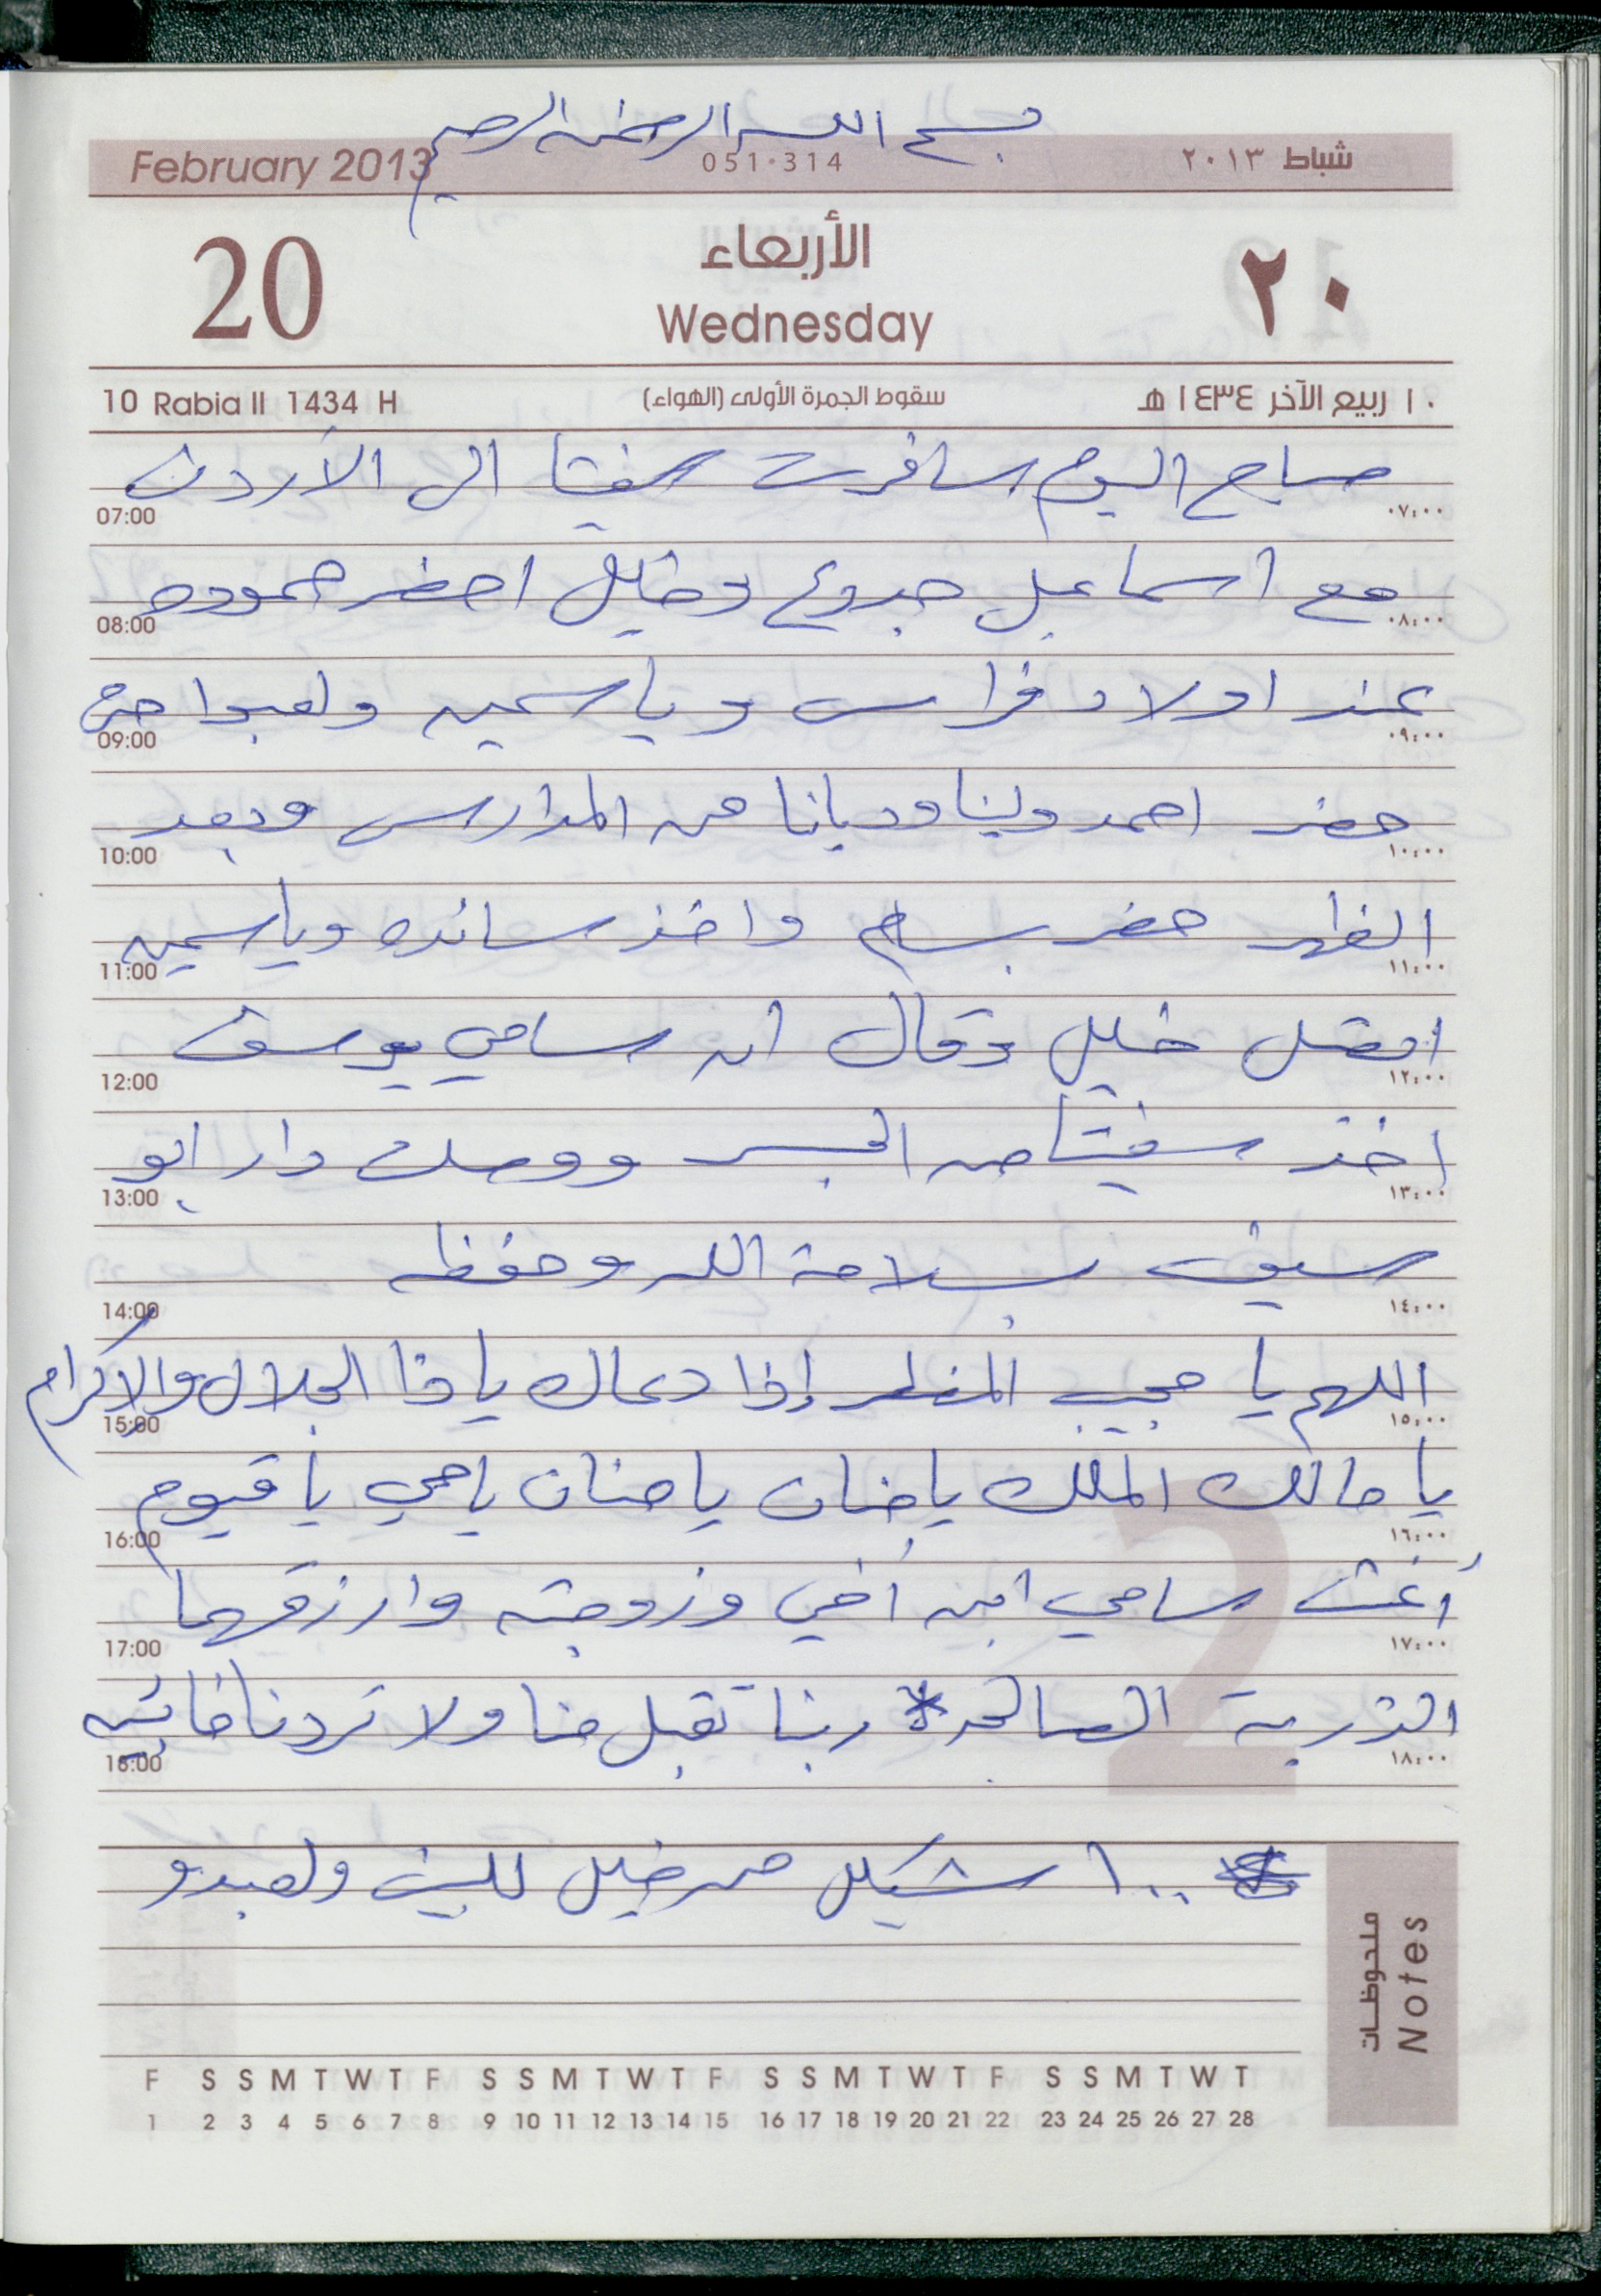 بسم الله الرحمن الرحيم
February 2013 051·314 شباط ٢٠١٣
20 الأربعاء ٢٠
Wednesday
10 Rabia II 1434 H سقوط الجمرة الأولى (الهواء) ١٠ ربيع الآخر ١٤٣٤ هـ
صباح اليوم سافرت الى الأردن
07:00 ٠٧:٠٠
مع اسماعيل وخليل احضر حموده
08:00 ٠٨:٠٠
عند اولاد فراس وياسمين ولعبوا حتى
09:00 ٠٩:٠٠
حضر احمد ولينا وديانا من المدارس وبعد
10:00 ١٠:٠٠
الظهر حضر بسام واخذ سائده وياسمين
11:00 ١١:٠٠
اتصل خليل وقال ان سامي يوسف
12:00 ١٢:٠٠
اخذ من الجسر ووصلت دار ابو
13:00 ١٣:٠٠
سيف بسلامة الله وحفظه
14:00 ١٤:٠٠
اللهم يا مجيب المضطر إذا دعاك يا ذا الجلال والإكرام
15:00 ١٥:٠٠
يا مالك الملك يا حنان يا منان يا حي يا قيوم
16:00 ١٦:٠٠
أغث سامي ابن أخي وزوجته وارزقهما
17:00 ١٧:٠٠
الذرية الصالحه ربنا تقبل منا ولا تردنا خائبين
18:00 ١٨:٠٠
١٠٠ شيكل من خليل لليث ولعبدو
ملحوظات
Notes
F S S M T W T F S S M T W T F S S M T W T F S S M T W T
1 2 3 4 5 6 7 8 9 10 11 12 13 14 15 16 17 18 19 20 21 22 23 24 25 26 27 28